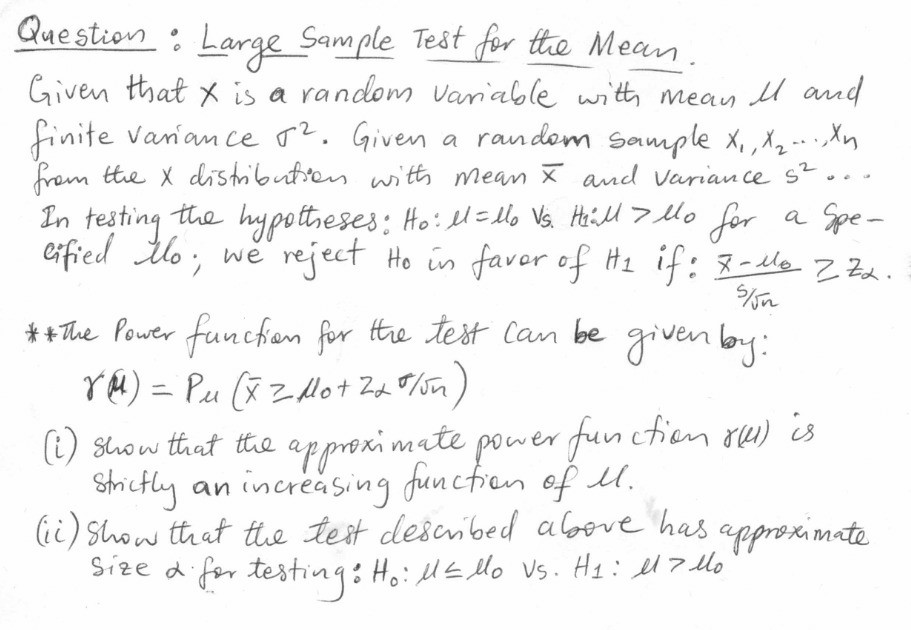 Question : Large Sample Test for the Mean.
Given that X is a random variable with mean μ and
finite variance σ². Given a random sample X₁, X₂ ..., Xn
from the X distribution with mean x̄ and variance s² ...
In testing the hypotheses: H₀: μ = μ₀ Vs. H₁: μ > μ₀ for a Spe-
cified μ₀; we reject H₀ in favor of H₁ if: (x̄ - μ₀)/(s/√n) ≥ Zα.
**The Power function for the test can be given by:
γ(μ) = Pμ (x̄ ≥ μ₀ + Zα σ/√n)
(i) Show that the approximate power function γ(μ) is
strictly an increasing function of μ.
(ii) Show that the test described above has approximate
Size α for testing: H₀: μ ≤ μ₀ Vs. H₁: μ > μ₀